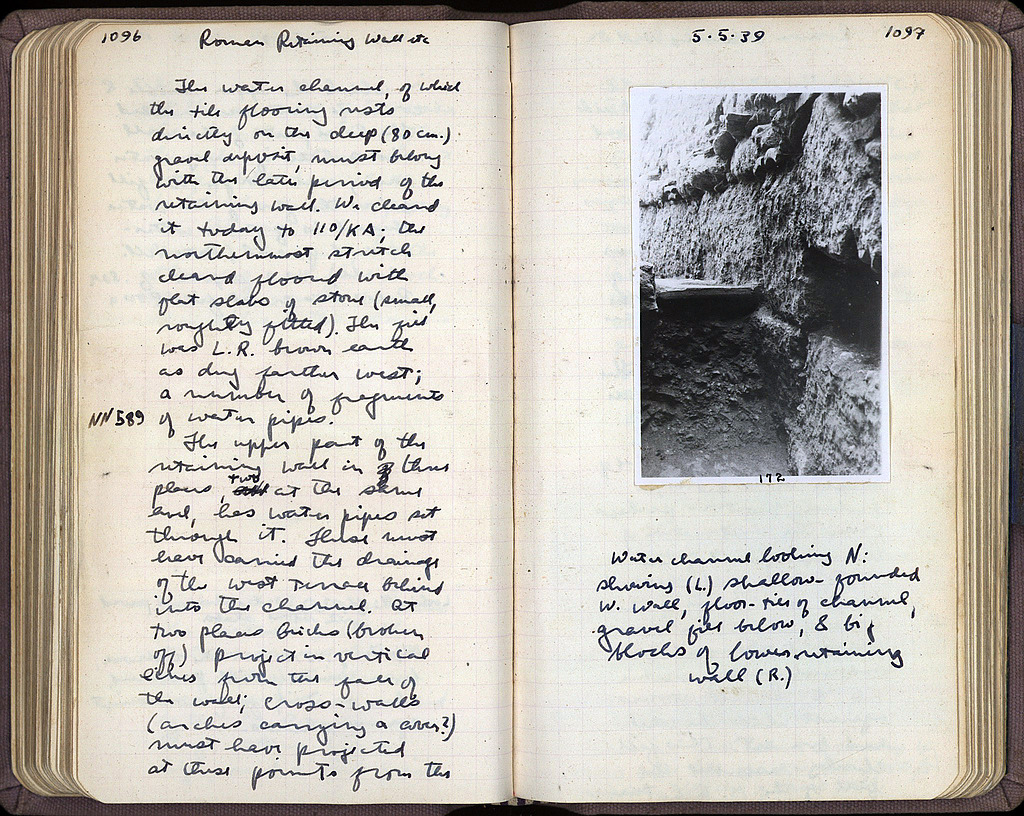 1096 Roman Retaining Wall etc
The water channel, of which
the tile flooring rests
directly on the deep (80 cm.)
gravel deposit, must belong
with the later period of the
retaining wall. We cleared
it today to 110/KA; the
northernmost stretch
cleared floored with
flat slabs of stone (small,
roughly fitted). The fill
was L.R. brown earth
as dug farther west;
a number of fragments
NN589 of water pipes.
The upper part of the
retaining wall in three
places, two at the same
level, has water pipes set
through it. These must
have carried the drainage
of the west terrace behind
into the channel. At
two places bricks (broken
off) project in vertical
lines from the face of
the wall; cross-walls
(arches carrying a cover?)
must have projected
at these points from the
5·5·39 1097
172
Water channel looking N:
showing (L.) shallow-founded
W. wall, floor-tiles of channel,
gravel fill below, & big
blocks of lower retaining
wall (R.)